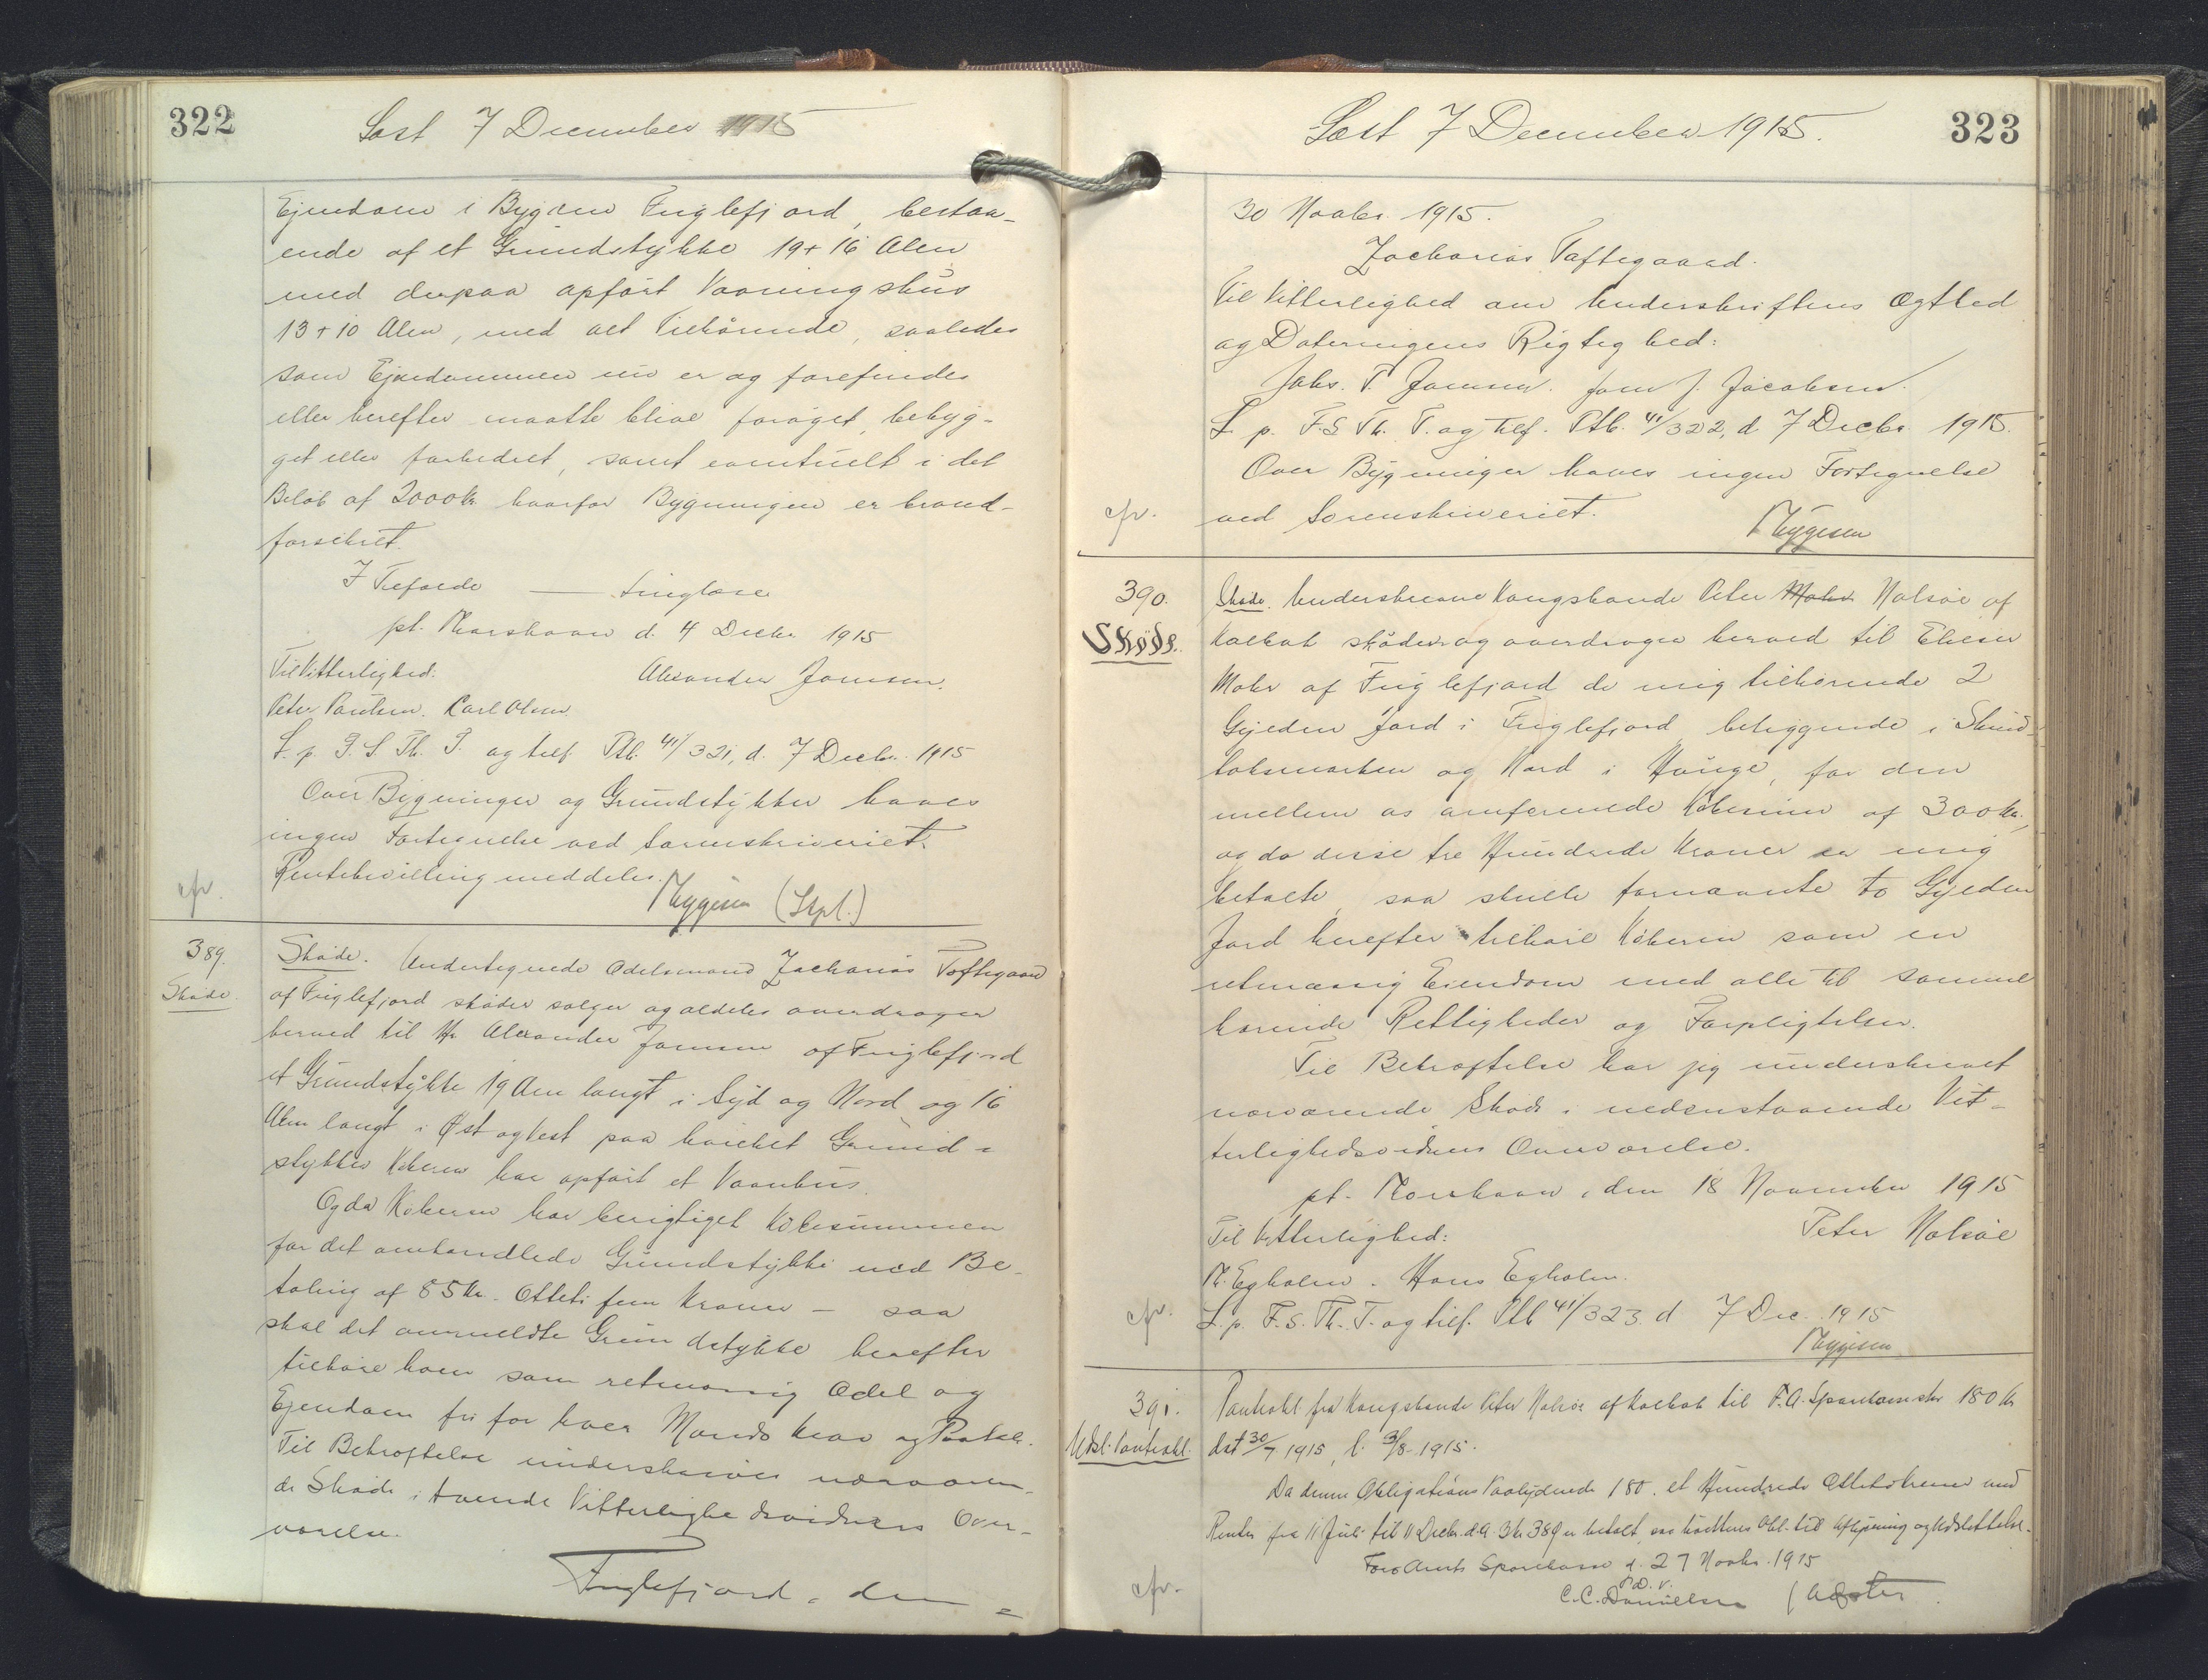 322
Læst 7 December 1915
Ejendom i Bygden Fuglefjord, bestaa-
ende af et Grundstykke 19 + 16 Alen
med derpaa opført Vaaningshus
13 + 10 Alen, med alt Tilhørende, saaledes
som Ejendommen nu er og forefindes
eller herefter maatte blive forøget, bebyg-
get eller forbedret, samt eventuelt i det
Beløb af 2000 Kr. hvorfor Bygningen er brand-
forsikret.
I Tilfælde — tinglæse
pt. Thorshavn d. 4 Decbr 1915
Til Vitterlighed: Alexander Joensen.
Peter Poulsen. Carl Olsen.
L. p. F. S. Th. T. og tilf. Ptb. 41/321, d. 7 Decbr. 1915
Over Bygninger og Grundstykker haves
ingen Fortegnelse ved Sorenskriveriet.
Rentebevilling meddeles.
cfr. Thygesen (Stpl.)
389.
Skøde.
Skøde. Undertegnede Odelsmand Zacharias Toftegaard
af Fuglefjord skøder sælger og aldeles overdrager
herved til Hr Alexander Joensen af Fuglefjord
et Grundstykke 19 Alen langt i Syd og Nord og 16
Alen langt i Øst og Vest paa hvilket Grund-
stykke Køberen har opført et Vaanhus.
Og da Køberen har berigtiget Købesummen
for det omhandlede Grundstykke med Be-
taling af 85 Kr. Otteti fem Kroner — saa
skal det anmeldte Grundstykke herefter
tilhøre ham som retmæssig Odel og
Ejendom fri for hver Mands Krav og Paatale.
Til Bekræftelse underskrives nærværen-
de Skøde i tvende Vitterlighedsvidners Over-
værelse.
Fuglefjord, den =
323
Læst 7 December 1915.
30 Novbr. 1915.
Zacharias Toftegaard.
Til Vitterlighed om Underskriftens Ægthed
og Dateringens Rigtighed:
Johs. P. Joensen. Joen J. Jacobsen.
L. p. F. S. Th. T. og tilf. Ptb. 41/322, d. 7 Decbr 1915.
Over Bygninger haves ingen Fortegnelse
ved Sorenskriveriet.
cfr. Thygesen
390.
Skøde.
Skøde. Underskrevne Kongsbonde Peter Mohr Nolsøe af
Kolbak skøder og overdrager herved til Elieser
Mohr af Fuglefjord de mig tilhørende 2
Gylden Jord i Fuglefjord beliggende i
og Nord i Hauge, for den
mellem os omforenede Købesum af 300 Kr.,
og da disse tre Hundrede Kroner er mig
betalte, saa skulle fornævnte to Gylden
Jord herefter tilhøre Køberen som en
retmæssig Eiendom med alle til samme
hørende Rettigheder og Forpligtelser.
Til Bekræftelse har jeg underskrevet
nærværende Skøde i nedenstaaende Vit-
terlighedsvidners Overværelse.
pt. Thorshavn, den 18 November 1915
Til Vitterlighed: Peter Nolsøe
M. Egholm. Hans Egholm.
cfr. L. p. F. S. Th. T. og tilf. Ptb 41/323. d 7 Dec. 1915
Thygesen
391.
Udsl. Pantobl.
Pantobl fra Kongsbonde Peter Nolsøe af Kolbak til F. A. Sparekasse stor 180 Kr
dat 30/7 1915, l. 3/8 1915.
Da denne Obligations Paalydende 180. et Hundrede Otteti Kroner med
Renter fra 11 Juni til 11 Decbr. d.A. 3 Kr 38 Ø er betalt, saa kvitteres Obl. til Aflysning og Udslettelse.
Færø Amts Sparekasse d. 27 Novbr. 1915
P. D. V.
cfr. C. C. Danielsen